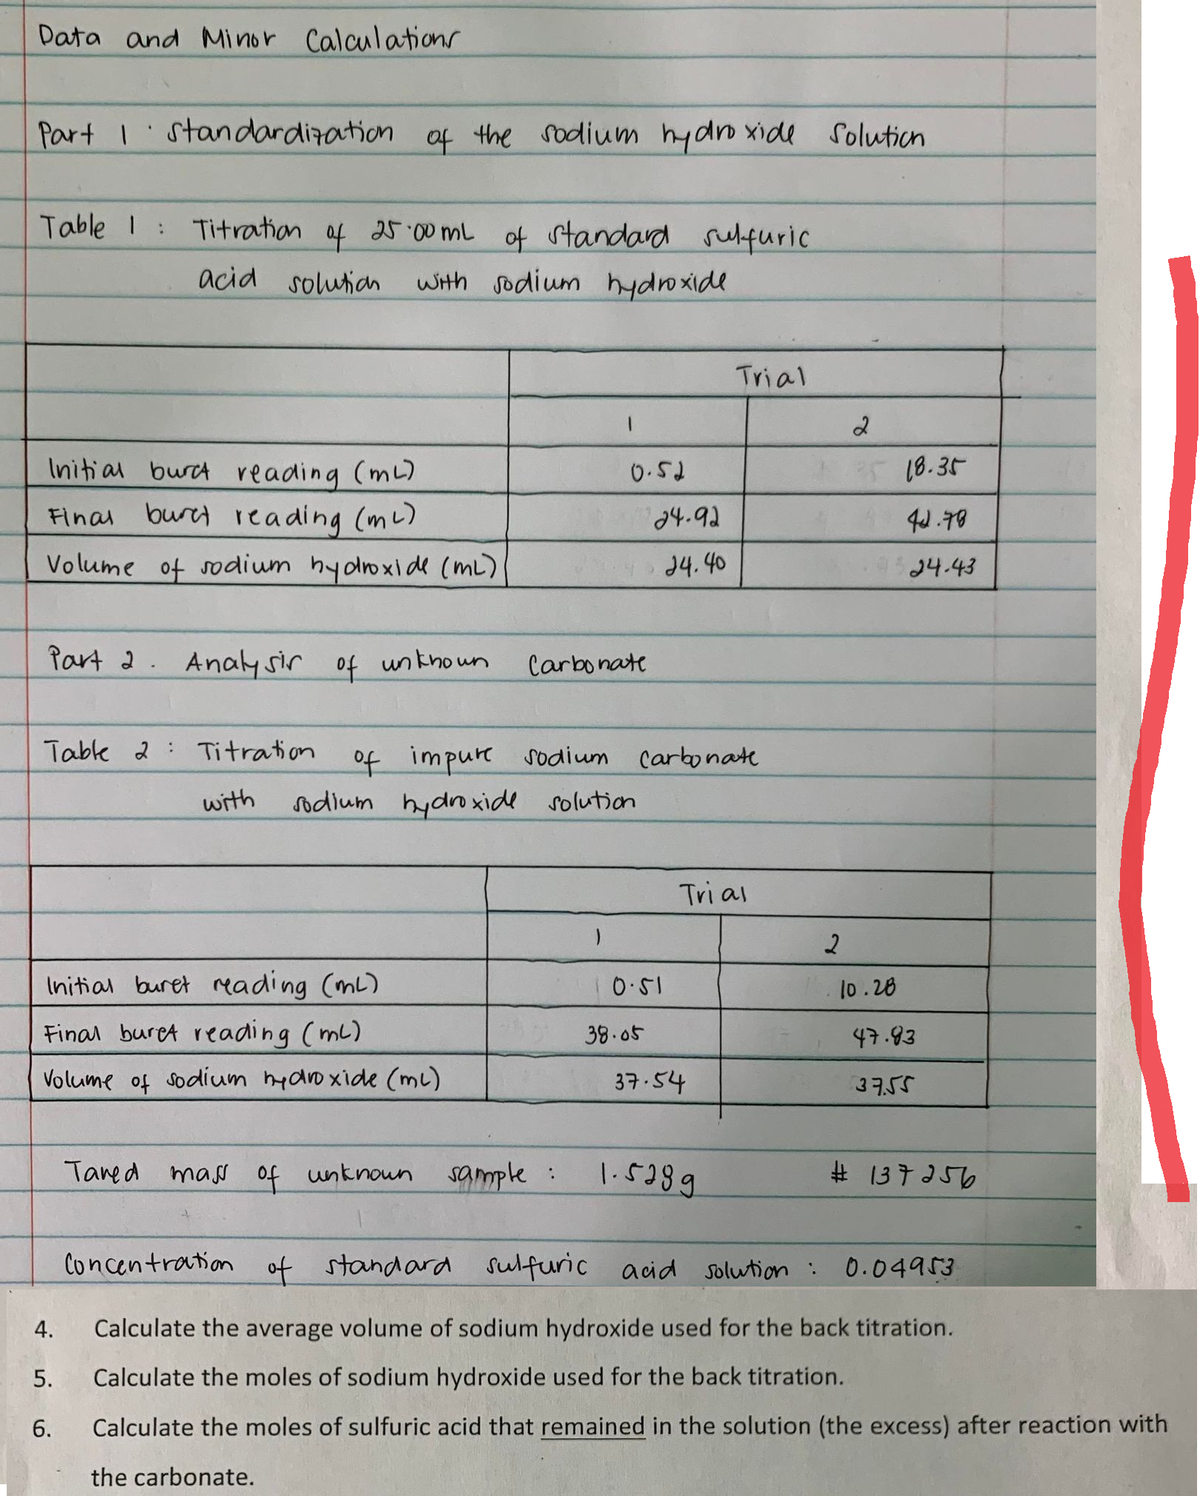 Data and Minor Calculations
Part 1 : Standardization of the sodium hydroxide solution
Table 1 : Titration of 25.00 mL of standard sulfuric
acid solution with sodium hydroxide
Trial
1 2
Initial buret reading (mL) 0.52 18.35
Final buret reading (mL) 24.92 42.78
Volume of sodium hydroxide (mL) 24.40 24.43
Part 2. Analysis of unknown carbonate
Table 2 : Titration of impure sodium carbonate
with sodium hydroxide solution
Trial
1 2
Initial buret reading (mL) 0.51 10.28
Final buret reading (mL) 38.05 47.83
Volume of sodium hydroxide (mL) 37.54 37.55
Tared mass of unknown sample : # 137256
Concentration of standard sulfuric acid solution : 0.04953
4. Calculate the average volume of sodium hydroxide used for the back titration.
5. Calculate the moles of sodium hydroxide used for the back titration.
6. Calculate the moles of sulfuric acid that remained in the solution (the excess) after reaction with
the carbonate.